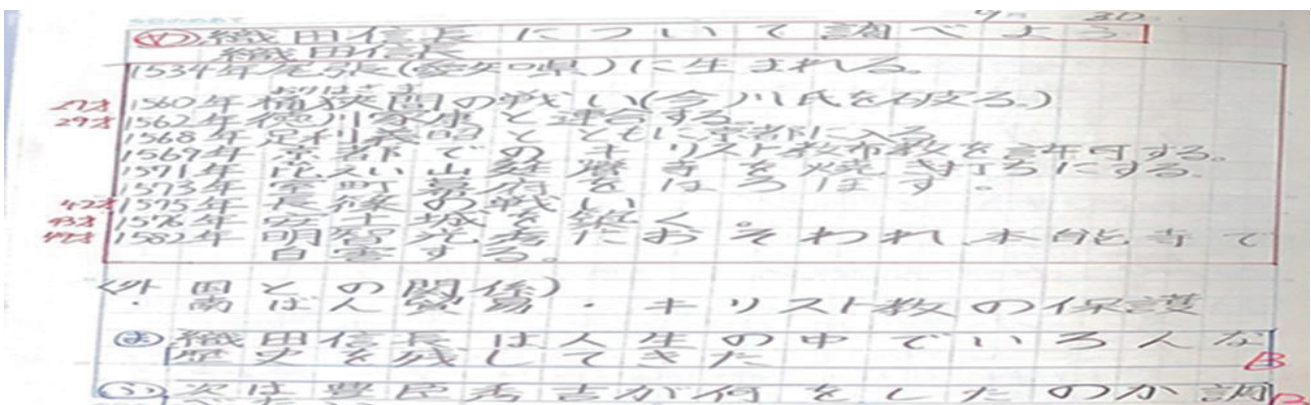 今日のめあて
9月 30
め 織田信長について調べよう
織田信長
1534年尾張(愛知県)に生まれる。
おけはざま
27才 1560年桶狭間の戦い(今川氏を破る)
29才 1562年徳川家康と連合する。
1568年足利義昭とともに京都に入る
1569年京都でのキリスト教布教を許可する。
1571年比えい山延暦寺を焼き打ちにする。
1573年室町幕府をほろぼす。
42才 1575年長篠の戦い
43才 1576年安土城を築く。
49才 1582年明智光秀におそわれ、本能寺で
自害する。
〈外国との関係〉
・南ばん貿易・キリスト教の保護
ま 織田信長は人生の中でいろんな
歴史を残してきた
B
ふ 次は豊臣秀吉が何をしたのか調
べたい